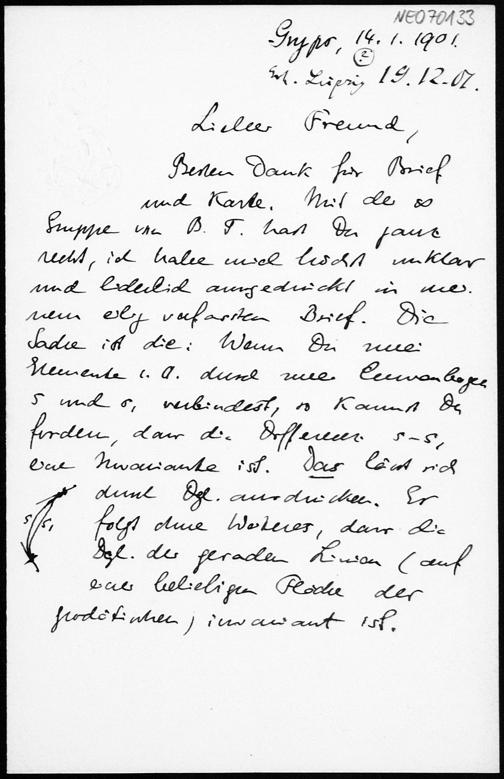 NEO70133
Grypsr, 14.1.1901.
(?)
Erh. Leipzig 19.12.01.
Lieber Freund,
Besten Dank für Brief
und Karte. Mit der ∞
Gruppe von B. T. hast Du ganz
recht, ich habe mich höchst unklar
und liderlich ausgedrückt in mei-
nem eilig verfassten Brief. Die
Sache ist die: Wenn Du zwei
Elemente i. A. durch zwei Curvenbogen
s und s, verbindest, so kannst Du
fordern, dass die Differenz s-s,
eine Invariante ist. Das lässt sich
durch Dgl. ausdrücken. Er
s s, folgt ohne Weiteres, dass die
Dgl. der geraden Linien (auf
einer beliebigen Fläche der
geodätischen) invariant ist.